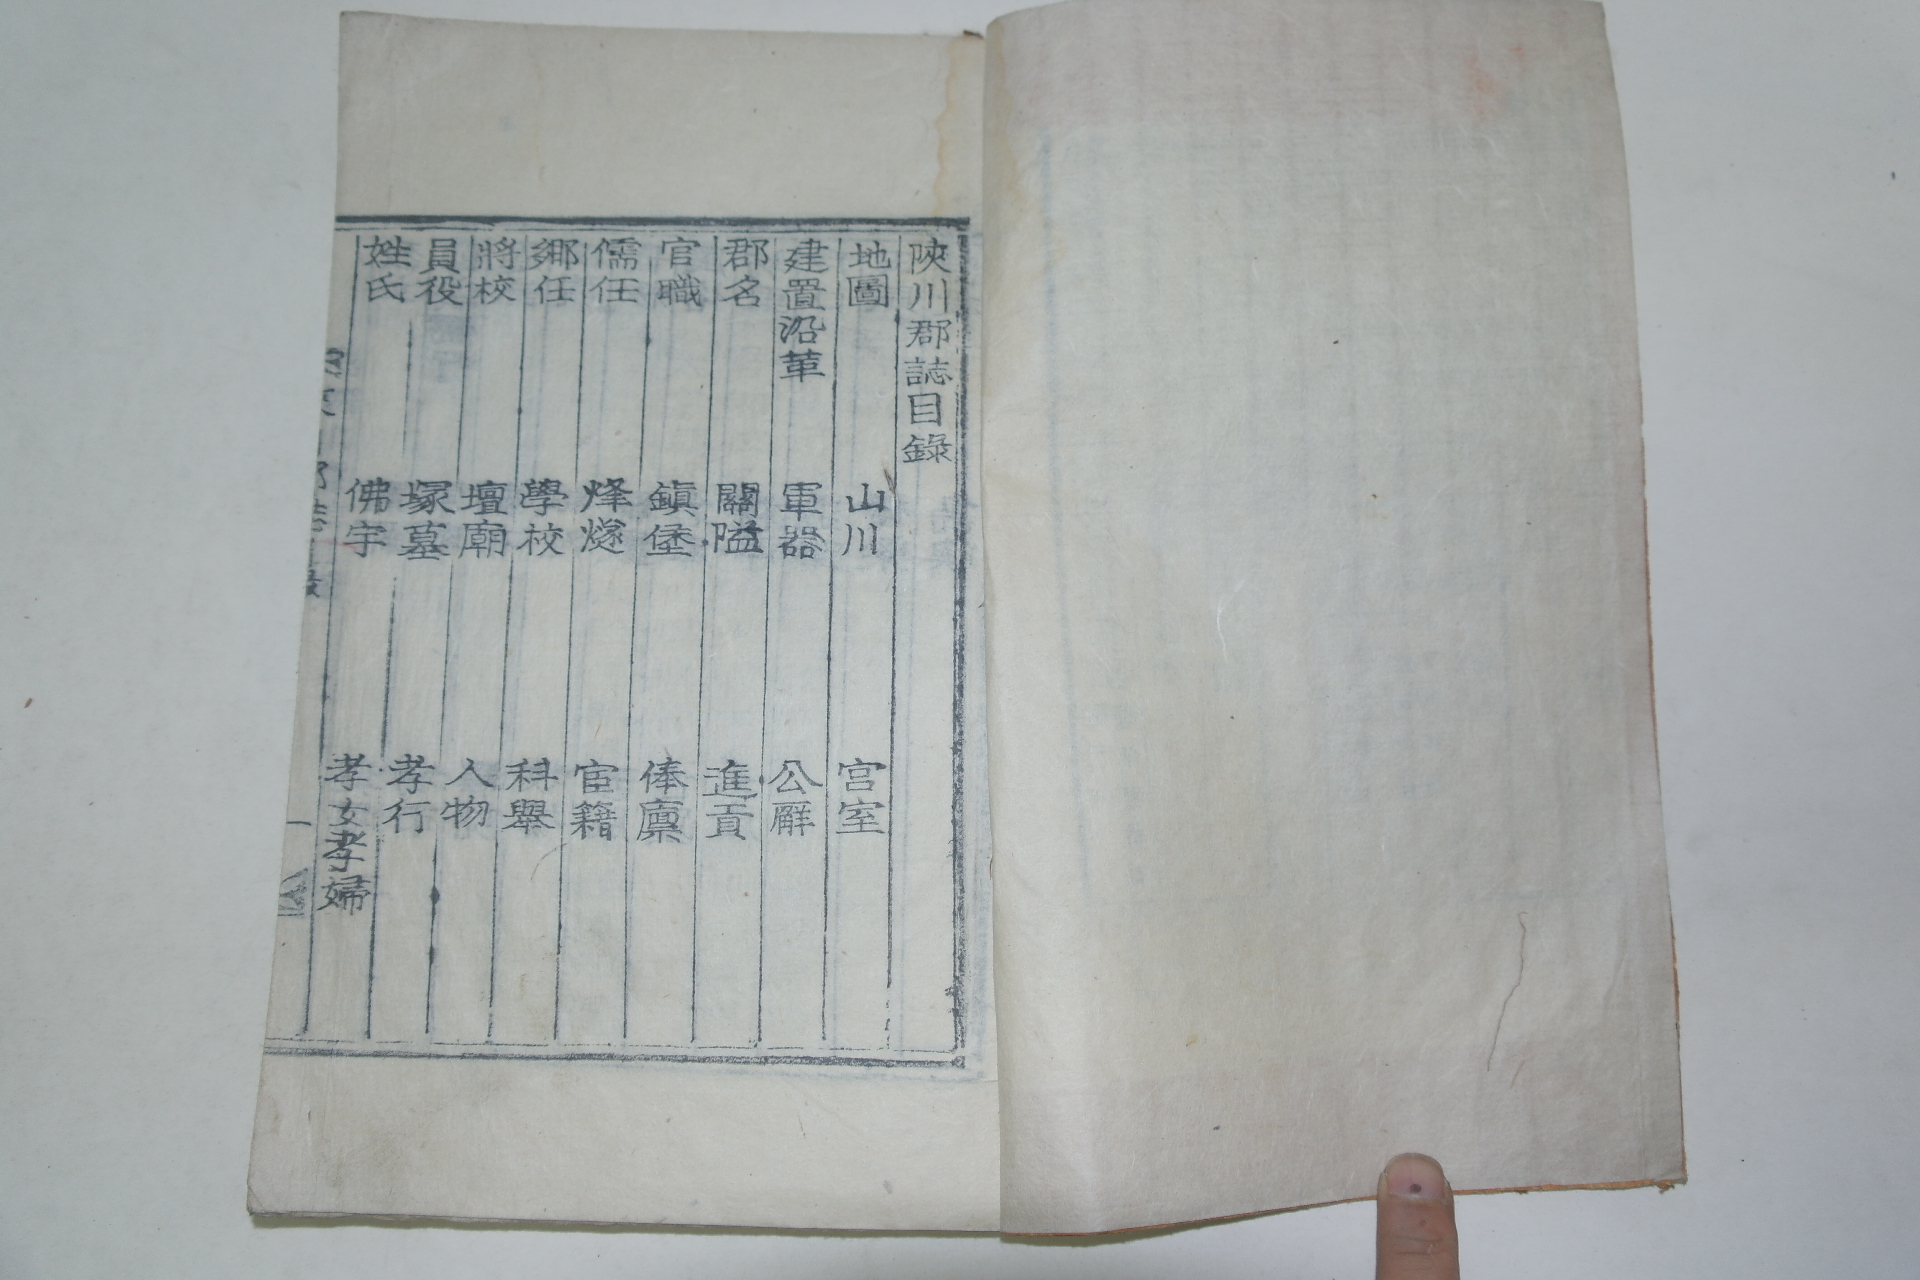 陜川郡誌目錄
地圖 山川 宮室
建置沿革 軍器 公廨
郡名 關隘 進貢
官職 鎭堡 俸廩
儒任 烽燧 宦籍
鄉任 學校 科擧
將校 壇廟 人物
員役 塚墓 孝行
姓氏 佛宇 孝女孝婦